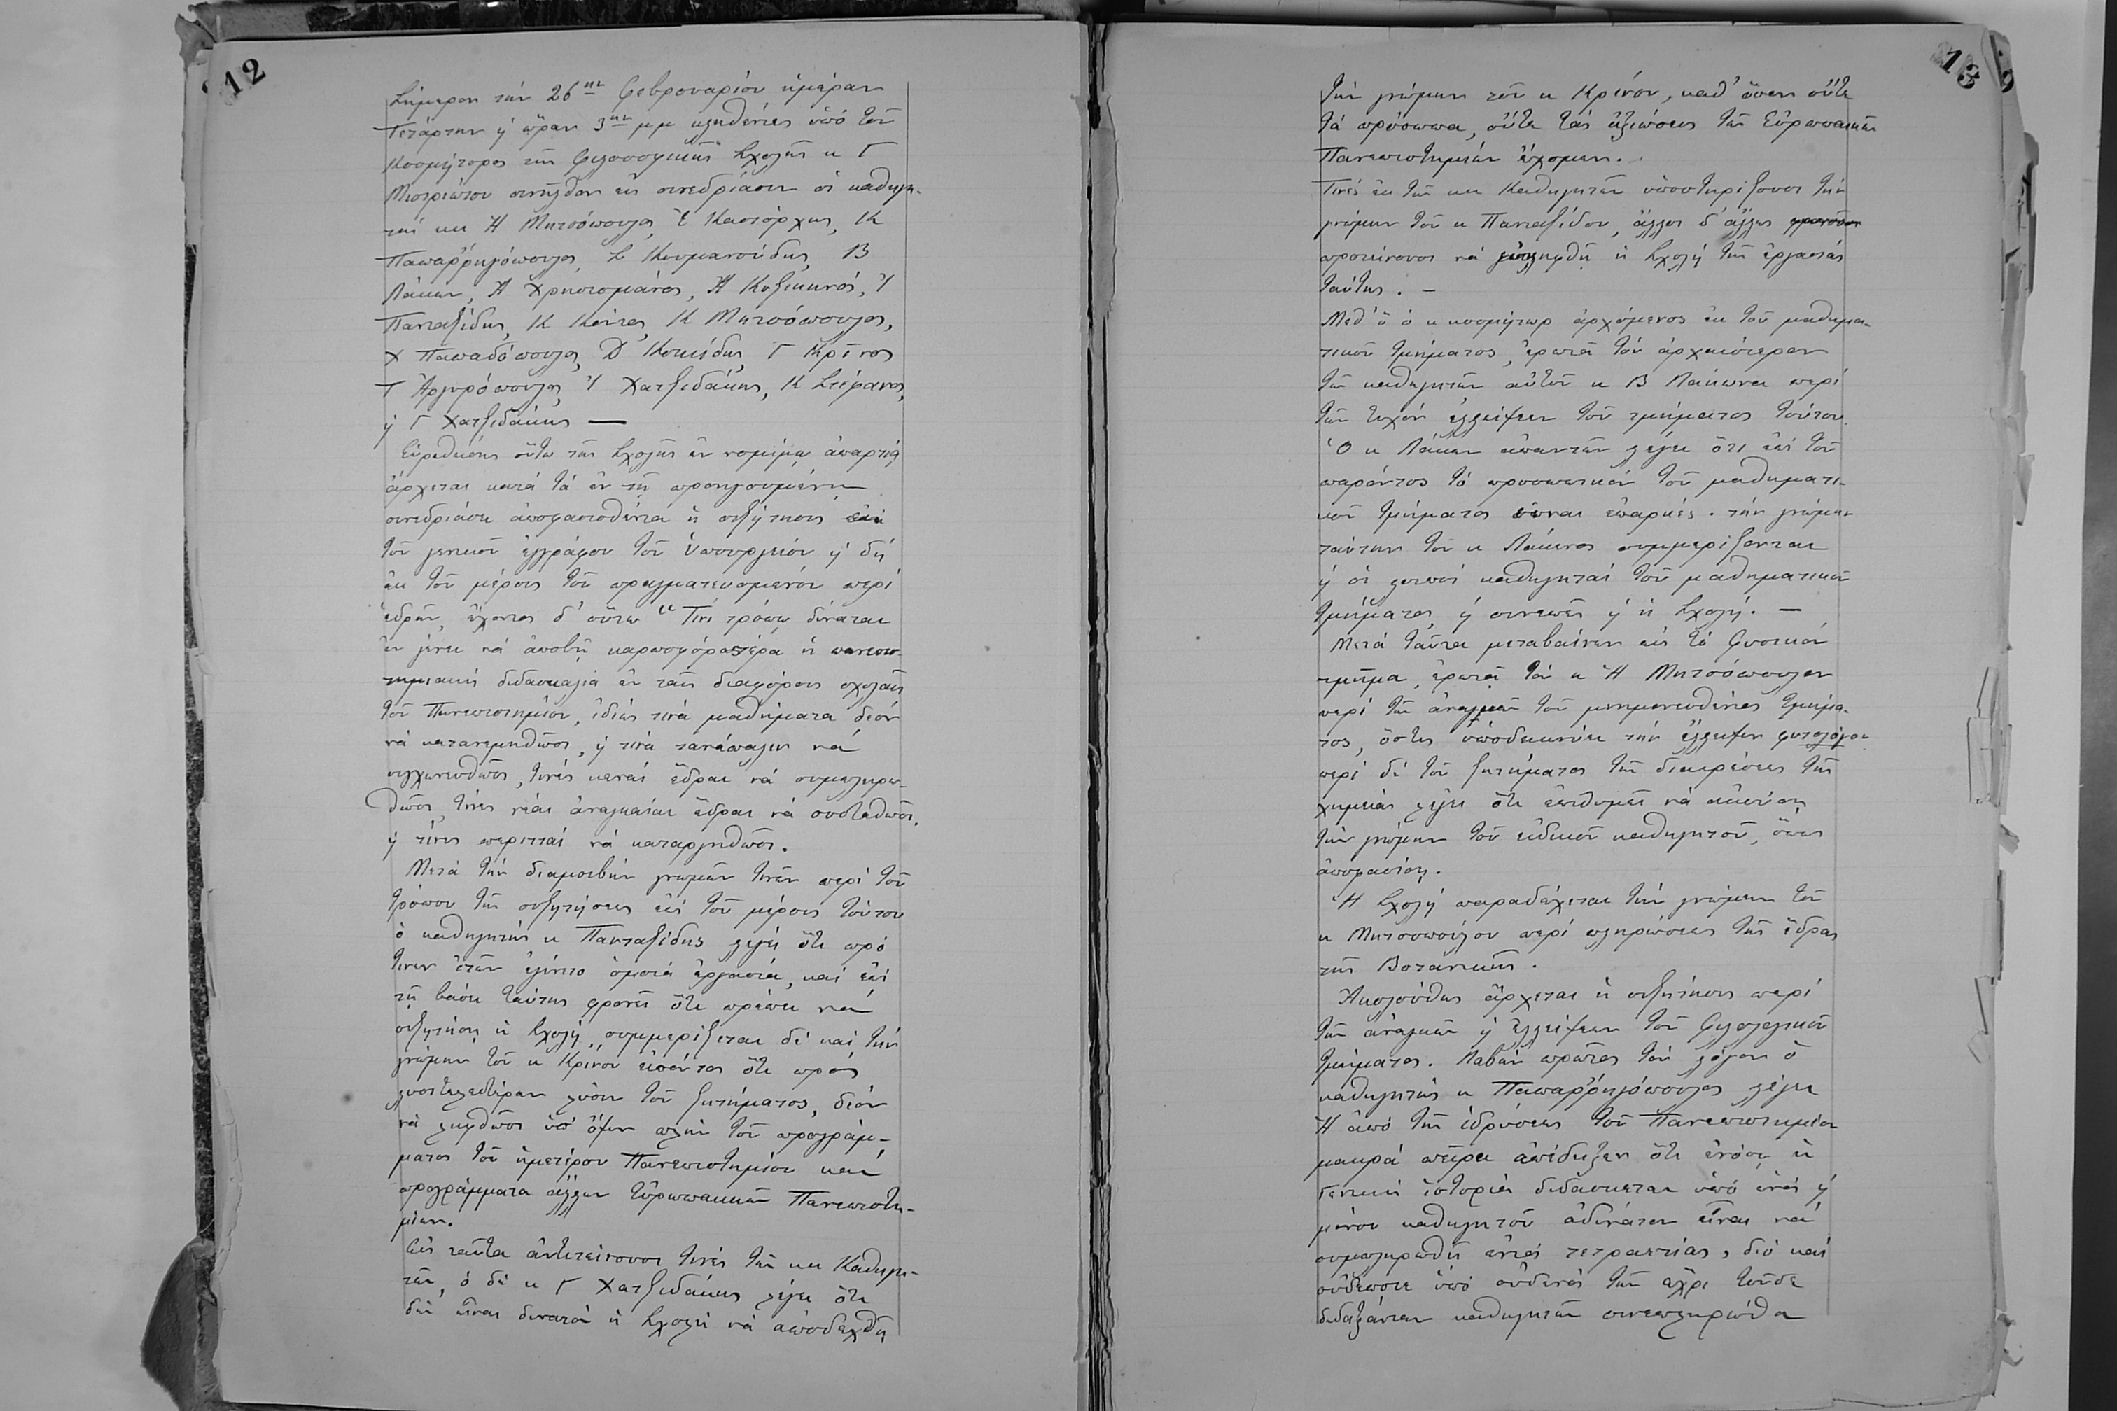 12
Σήμερον τὴν 26ην Φεβρουαρίου ἡμέραν
Τετάρτην ἡ ὥραν 3ην μμ κληθέντες ὑπό τοῦ
Κοσμήτορος τῆς Φιλοσοφικῆς Σχολῆς κ Γ
Μιστριώτου συνῆλθον εἰς συνεδρίασιν οἱ καθηγη-
ταί κκ Ἡ Μητσόπουλος, Ἐ Καστόρχης, Κ
Παπαῤῥηγόπουλος, Σ Κουμανούδης, Β
Λάκων, Ἀ Χρηστομάνος, Ἀ Κυζικηνός, Ἰ
Πανταζίδης, Κ Κόντος, Κ Μητσόπουλος,
Χ Παπαδόπουλος, Δ Κοκίδης, Γ Κρίνος
Τ Ἀργυρόπουλος, Ἰ Χατζιδάκης, Κ Στέφανος,
ϗ Γ Χατζιδάκης —
Εὑρεθείσης οὕτω τῆς Σχολῆς ἐν νομίμῳ ἀπαρτίᾳ
ἄρχεται κατά τά ἐν τῇ προηγουμένῃ
συνεδριάσει ἀποφασισθέντα ἡ συζήτησις ἐπί
τοῦ γενικοῦ ἐγγράφου τοῦ Ὑπουργείου ϗ δή
ἐκ τοῦ μέρους τοῦ πραγματευομένου περί
ἑδρῶν, ἔχοντος δ' οὕτω "Τίνι τρόπῳ δύναται
ἐν γένει νά ἀποβῇ καρποφορωτέρα ἡ πανεπιστη-
τημιακή διδασκαλία ἐν ταῖς διαφόροις σχολαῖς
τοῦ Πανεπιστημίου, ἰδίως τινά μαθήματα δέον
νά κατανεμηθῶσι, ϗ τινά τανάπαλιν νά
συγχωνευθῶσι, τινές κεναί ἕδραι νά συμπληρω-
θῶσι, τίνες νέαι ἀναγκαῖαι ἕδραι νά συσταθῶσι,
ϗ τίνες περιτταί νά καταργηθῶσι.
Μετά τήν διαμοιβήν γνωμῶν τινῶν περί τοῦ
τρόπου τῆς συζητήσεως ἐπί τοῦ μέρους τούτου
ὁ καθηγητής κ Πανταζίδης λέγει ὅτι πρό
τινων ἐτῶν ἐγένετο ὁμοία ἐργασία, καί ἐπί
τῇ βάσει ταύτης φρονεῖ ὅτι πρέπει νά
συζητήσῃ ἡ Σχολή, συμμερίζεται δέ καί τήν
γνώμην τοῦ κ Κρίνου εἰπόντος ὅτι πρός
λυσιτελεστέραν λύσιν τοῦ ζητήματος, δέον
νά ληφθῶσι ὑπ' ὄψιν πλήν τοῦ προγράμ-
ματος τοῦ ἡμετέρου Πανεπιστημίου καί
προγράμματα ἄλλων Εὐρωπαϊκῶν Πανεπιστη-
μίων.
Εἰς ταῦτα ἀντιτείνουσι τινές τῶν κκ Καθηγη-
τῶν, ὁ δέ κ Γ Χατζιδάκης λέγει ὅτι
δέν εἶναι δυνατόν ἡ Σχολή νά ἀποδεχθῇ
13
τήν γνώμην τοῦ κ Κρίνου, καθ' ὅσον οὔτε
τά πρόσωπα, οὔτε τάς ἀξιώσεις τῶν Εὐρωπαϊκῶν
Πανεπιστημίων ἔχομεν.
Τινές ἐκ τῶν κκ Καθηγητῶν ὑποστηρίζουσι τήν
γνώμην τοῦ κ Πανταζίδου, ἄλλοι δ' ἄλλως
προτείνουσι νά ἐπιληφθῇ ἡ Σχολή τῆς ἐργασίας
ταύτης. —
Μεθ' ὅ ὁ κ κοσμήτωρ ἀρχόμενος ἐκ τοῦ μαθημα-
τικοῦ τμήματος, ἐρωτᾷ τόν ἀρχαιότερον
τῶν καθηγητῶν αὐτοῦ κ Β Λάκωνα περί
τῶν τυχόν ἐλλείψεων τοῦ τμήματος τούτου.
Ὁ κ Λάκων ἀπαντῶν λέγει ὅτι ἐπί τοῦ
παρόντος τό προσωπικόν τοῦ μαθηματι-
κοῦ τμήματος εἶναι ἐπαρκές. τήν γνώμην
ταύτην τοῦ κ Λάκωνος συμμερίζονται
ϗ οἱ λοιποί καθηγηταί τοῦ μαθηματικοῦ
τμήματος, ϗ συνεπῶς ϗ ἡ Σχολή. —
Μετά ταῦτα μεταβαίνων εἰς τό Φυσικόν
τμῆμα, ἐρωτᾷ τόν κ Ἡ Μητσόπουλον
περί τῶν ἀναγκῶν τοῦ μνημονευθέντος τμήμα-
τος, ὅστις ὑποδεικνύει τήν ἔλλειψιν φυτολόγου
περί δέ τοῦ ζητήματος τῆς διαιρέσεως τῆς
χημείας λέγει ὅτι ἐπιθυμεῖ νά ἀκούσῃ
τήν γνώμην τοῦ εἰδικοῦ καθηγητοῦ, ὅπως
ἀποφασίσῃ.
Ἡ Σχολή παραδέχεται τήν γνώμην τοῦ
κ Μητσοπούλου περί πληρώσεως τῆς ἕδρας
τῆς Βοτανικῆς.
Ἀκολούθως ἄρχεται ἡ συζήτησις περί
τῶν ἀναγκῶν ϗ ἐλλείψεων τοῦ Φιλολογικοῦ
τμήματος. Λαβών πρῶτος τόν λόγον ὁ
καθηγητής κ Παπαῤῥηγόπουλος λέγει
Ἡ ἀπό τῆς ἱδρύσεως τοῦ Πανεπιστημίου
μακρά πεῖρα ἀπέδειξεν ὅτι ἐνόσῳ ἡ
Γενική ἱστορία διδάσκεται ὑπό ἑνός ϗ
μόνου καθηγητοῦ ἀδύνατον εἶναι νά
συμπληρωθῇ ἐντός τετραετίας, διό καί
οὐδέποτε ὑπό οὐδενός τῶν ἄχρι τοῦδε
διδαξάντων καθηγητῶν συνεπληρώθη